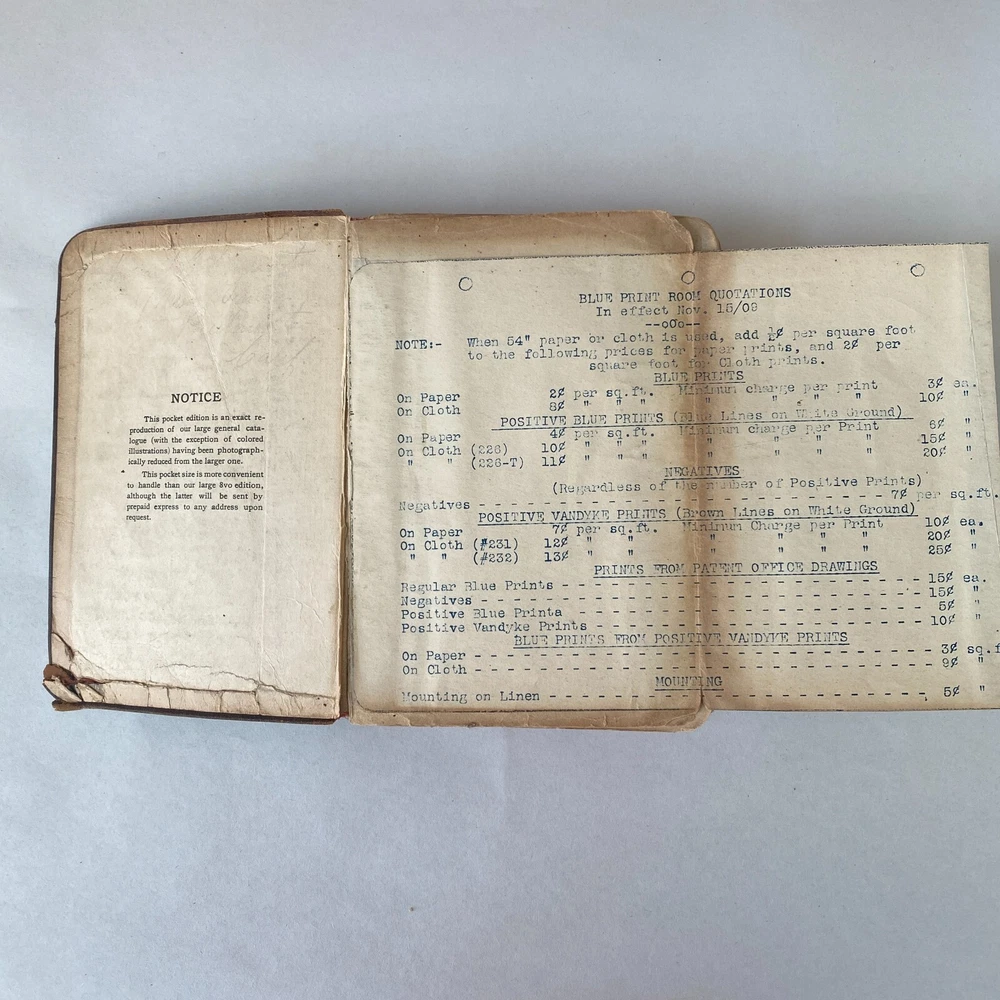 NOTICE
This pocket edition is an exact re-
production of our large general cata-
logue (with the exception of colored
illustrations) having been photograph-
ically reduced from the larger one.
This pocket size is more convenient
to handle than our large 8vo edition,
although the latter will be sent by
prepaid express to any address upon
request.
BLUE PRINT ROOM QUOTATIONS
In effect Nov. 15/09
--oOo--
NOTE:- When 54" paper or cloth is used, add ½¢ per square foot
to the following prices for paper prints, and 2¢ per
square foot for Cloth prints.
BLUE PRINTS
On Paper 2¢ per sq.ft. Minimum charge per print 3¢ ea.
On Cloth 8¢ " " " " " " 10¢ "
POSITIVE BLUE PRINTS (Blue Lines on White Ground)
On Paper 4¢ per sq.ft. Minimum charge per Print 6¢ "
On Cloth (226) 10¢ " " " " " " 15¢ "
" " (226-T) 11¢ " " " " " " 20¢ "
NEGATIVES
(Regardless of the number of Positive Prints)
Negatives - - - - - - - - - - - - - - - - - - - - - - - - - 7¢ per sq.ft.
POSITIVE VANDYKE PRINTS (Brown Lines on White Ground)
On Paper 7¢ per sq.ft. Minimum Charge per Print 10¢ ea.
On Cloth (#231) 12¢ " " " " " 20¢ "
" " (#232) 13¢ " " " " " 25¢ "
PRINTS FROM PATENT OFFICE DRAWINGS
Regular Blue Prints - - - - - - - - - - - - - - - - - - - - - 15¢ ea.
Negatives - - - - - - - - - - - - - - - - - - - - - - - - - - 15¢ "
Positive Blue Printa - - - - - - - - - - - - - - - - - - - - 5¢ "
Positive Vandyke Prints - - - - - - - - - - - - - - - - - - - 10¢ "
BLUE PRINTS FROM POSITIVE VANDYKE PRINTS
On Paper - - - - - - - - - - - - - - - - - - - - - - - - - - 3¢ sq.f
On Cloth - - - - - - - - - - - - - - - - - - - - - - - - - - 9¢ "
MOUNTING
Mounting on Linen - - - - - - - - - - - - - - - - - - - - - - 5¢ "